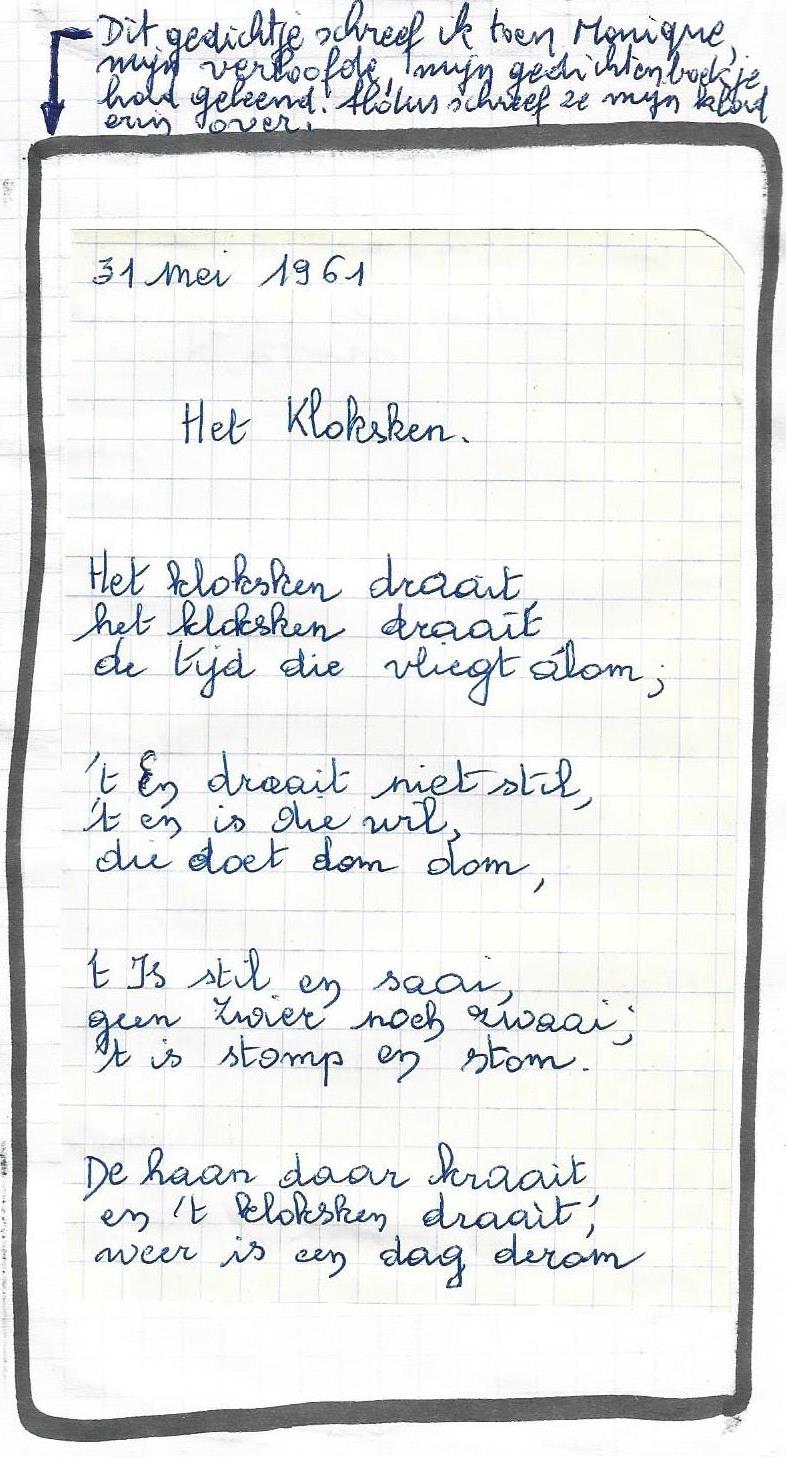 Dit gedichtje schreef ik toen Monique,
mijn verloofde, mijn gedichtenboekje
had geleend. Aldus schreef ze mijn klad
erin over.
31 mei 1961
Het Kloksken.
Het kloksken draait,
het kloksken draait
de tijd die vliegt álom;
't En draait niet stil,
't en is die wil,
die doet dom dom,
't Is stil en saai,
geen zwier noch zwaai;
't is stomp en stom.
De haan daar kraait,
en 't kloksken draait;
weer is een dag derom